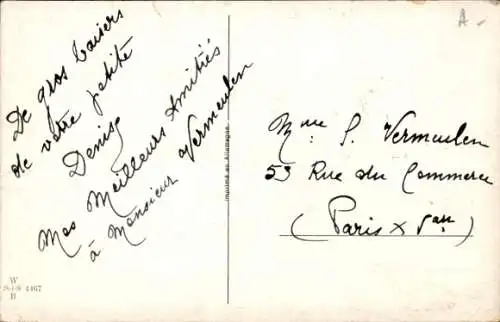 De gros baisers
de votre petite
Denise
Mes Meilleurs Amitiés
à Monsieur Vermeulen
Imprimé en Allemagne
Mme S. Vermeulen
53 Rue du Commerce
(Paris X
A
W
4467
B